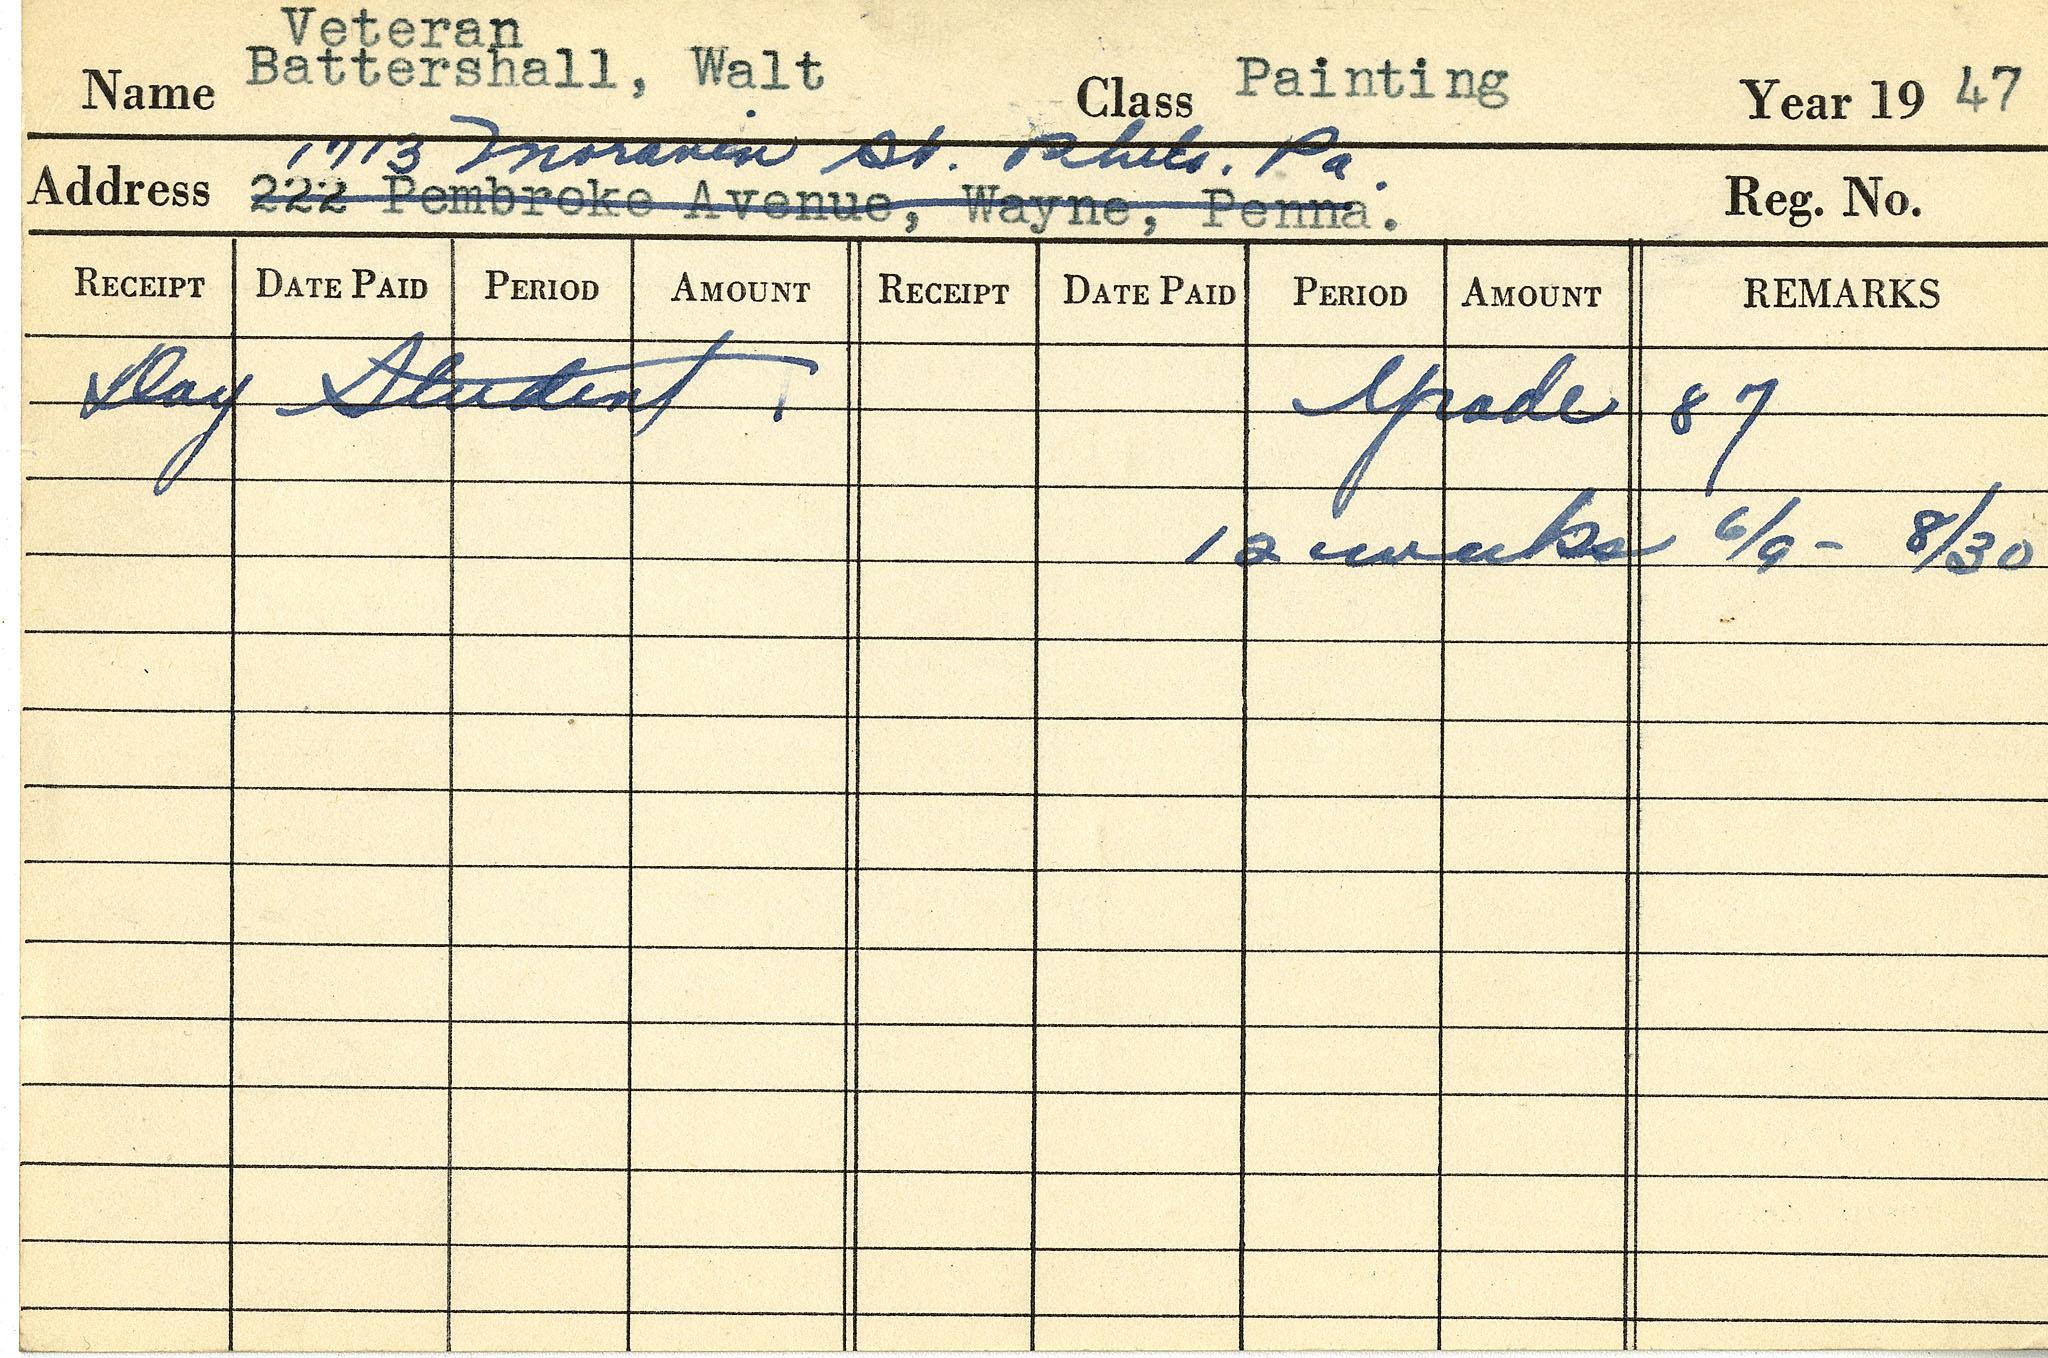 Veteran
Name Battershall, Walt Class Painting Year 19 47
1713 Moravian St. Phila. Pa.
Address 222 Pembroke Avenue, Wayne, Penna. Reg. No.
RECEIPT DATE PAID PERIOD AMOUNT RECEIPT DATE PAID PERIOD AMOUNT REMARKS
Day Student. Grade 87
12 weeks 6/9 - 8/30